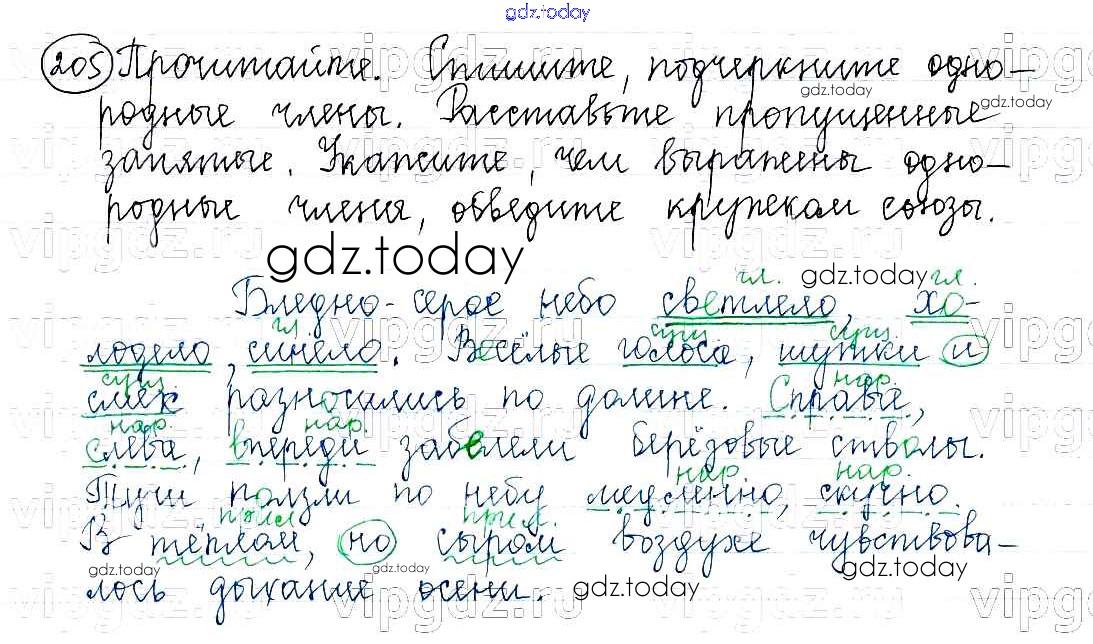 gdz.today
205 Прочитайте. Спишите, подчеркните одно-
gdz.today
родные члены. Расставьте пропущенные
gdz.today
запятые. Укажите, чем выражены одно-
родные члены, обведите кружком союзы.
gdz.today
гл. gdz.today гл.
Бледно-серое небо светлело, хо-
гл. сущ. сущ.
лодело, синело. Весёлые голоса, шутки и
сущ. нар.
смех разносились по долине. Справа,
нар. нар.
слева, впереди забелели берёзовые стволы.
нар. нар.
Тучи ползли по небу медленно, скучно.
прил. прил.
В тёплом, но сыром воздухе чувствова-
gdz.today gdz.today gdz.today
лось дыхание осени. gdz.today
vipgdz.ru